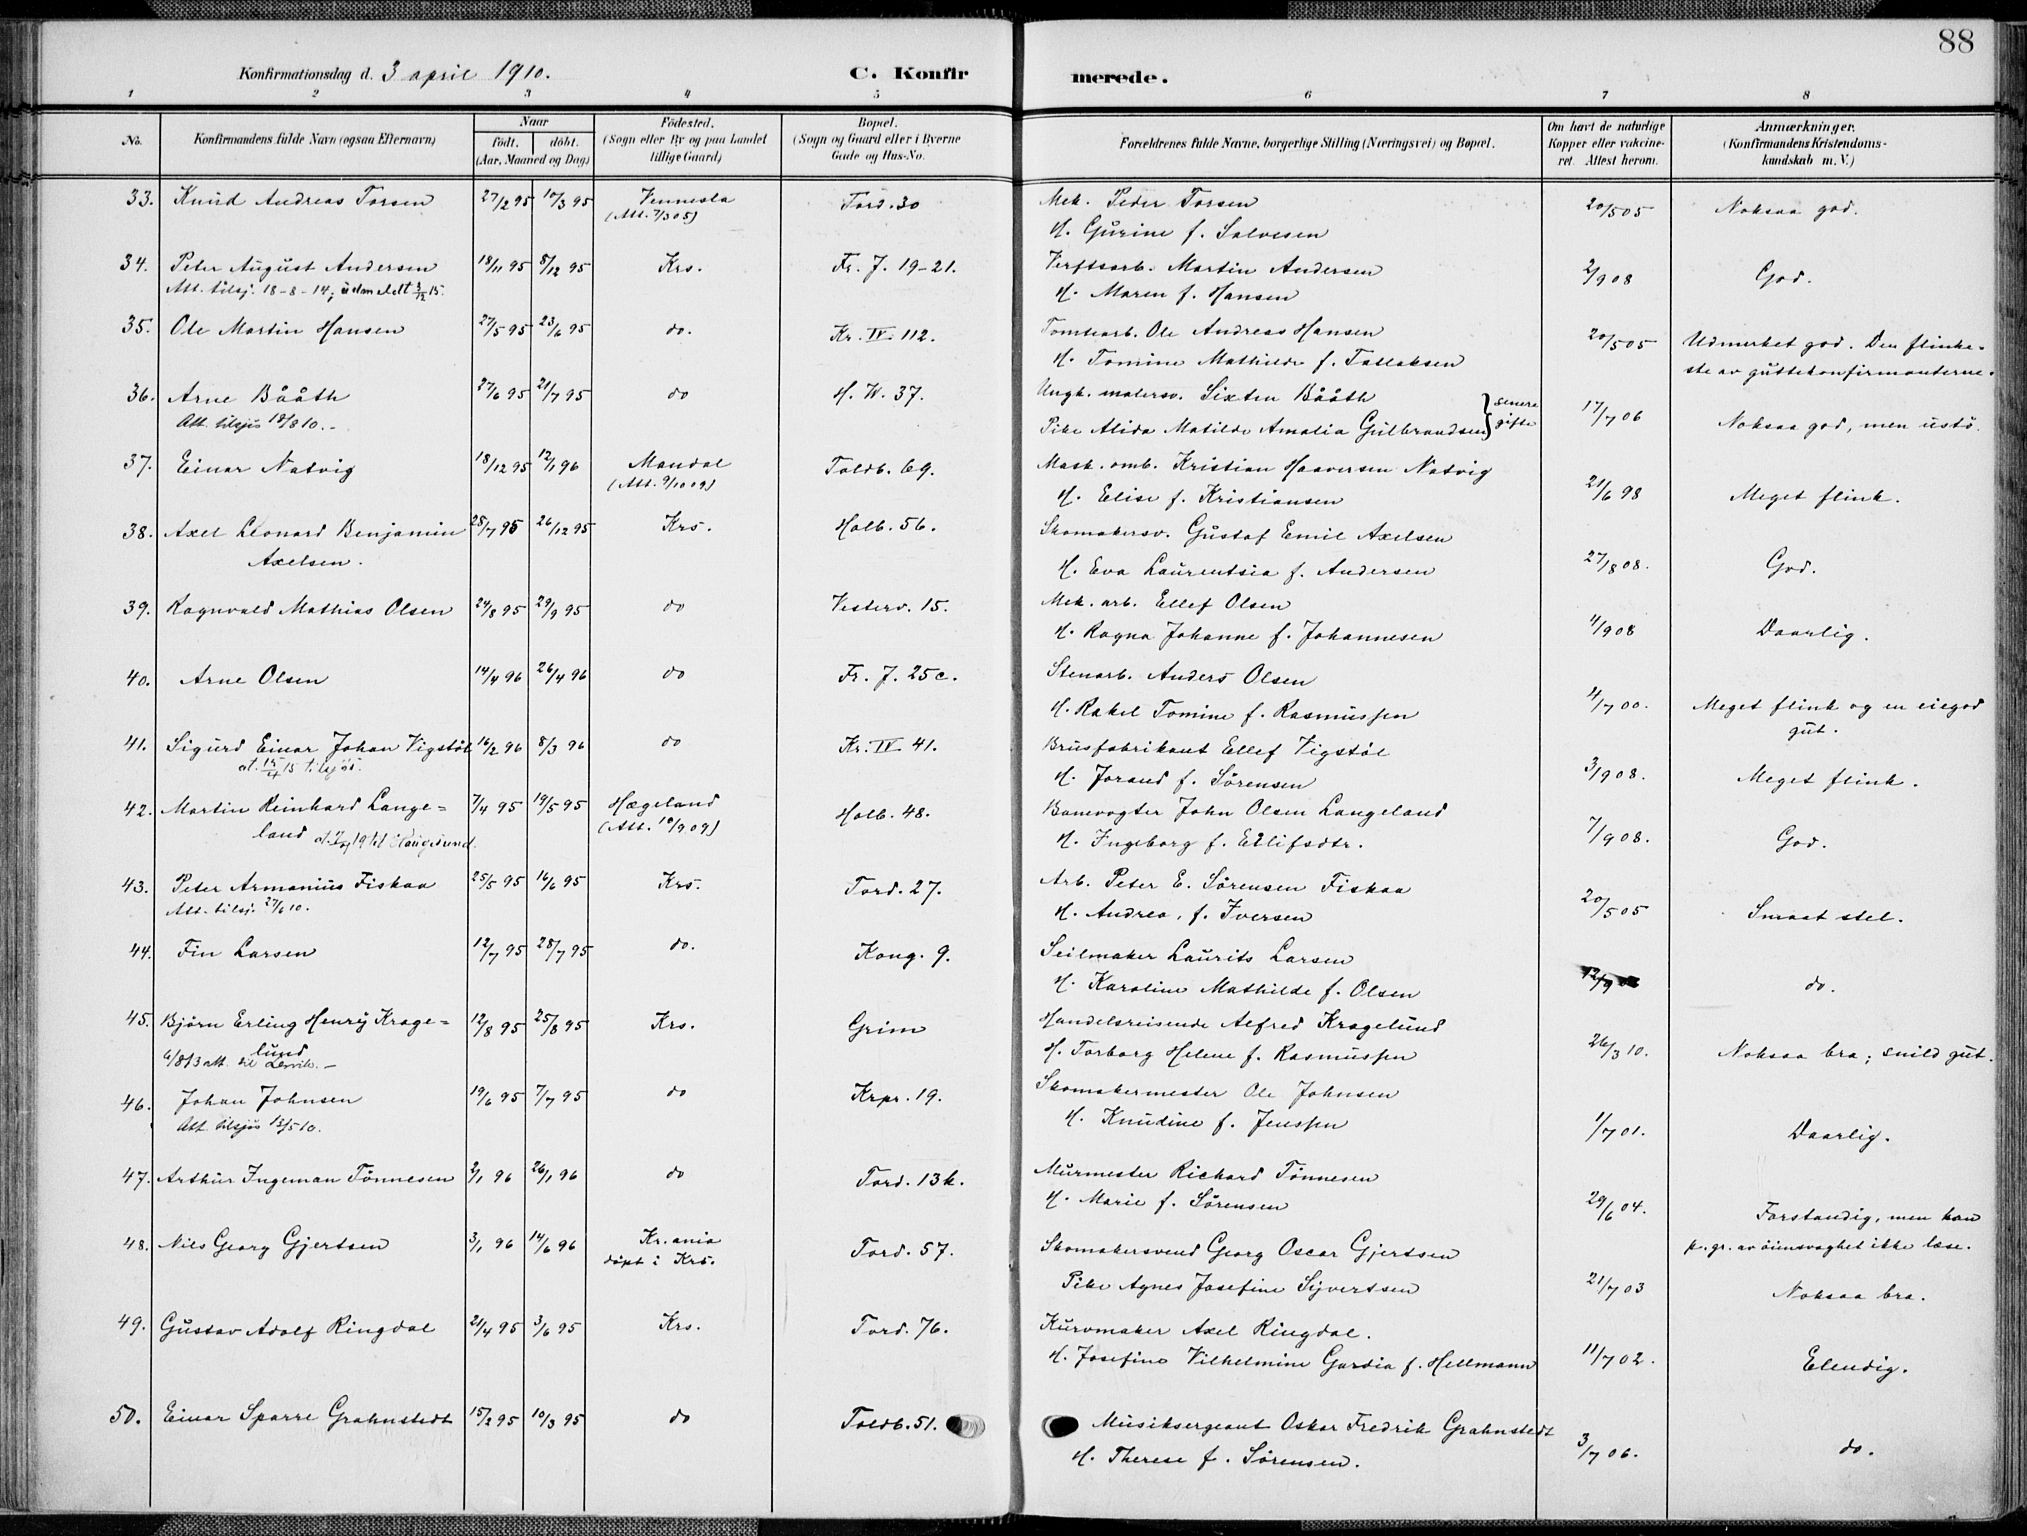 88
Konfirmationsdag d. 3 april 1910. C. Konfirmerede.
1 2 3 4 5 6 7 8
No. Konfirmandens fulde Navn (ogsaa Efternavn) Naar födt. döbt. (Aar, Maaned og Dag) Födested. (Sogn eller By og paa Landet tillige Gaard) Bopæl. (Sogn og Gaard eller i Byerne Gade og Hus-No. Forældrenes fulde Navne, borgerlige Stilling (Næringsvei) og Bopæl. Om havt de naturlige Kopper eller vakcineret. Attest herom. Anmærkninger. (Konfirmandens Kristendomskundskab m. V.)
33. Knud Andreas Torsen 27/2 95 10/3 95 Vennesla Tord. 30 Mek. Peder Torsen 20/5 05 Noksaa god.
(Att. 7/3 05) H. Gurine f. Salvesen
34. Peter August Andersen 18/11 95 8/12 95 Krs. Fr. J. 19-21. Verftsarb. Martin Andersen 2/9 08 God.
Att. tilsj. 18-8-14; udmeldt 3/12 15. H. Maren f. Hansen
35. Ole Martin Hansen 27/5 95 23/6 95 do. Kr. IV. 112. Tomtearb. Ole Andreas Hansen 20/5 05 Udmerket god. Den flinke-
H. Tomine Mathilde f. Tallaksen ste av guttekonfirmanterne.
36. Arne Bååth 27/6 95 21/7 95 do H. W. 37. Ungk. malersv. Sixten Bååth } senere 17/7 06 Noksaa god, men ustø.
Att. tilsjøs 18/8 10. - Pike Alida Matilde Amalia Gulbrandsen } gifte
37. Einar Natvig 18/12 95 12/1 96 Mandal Toldb. 69. Mask. omb. Kristian Haaversen Natvig 21/6 98 Meget flink.
(Att. 9/10 09) H. Elise f. Kristiansen
38. Axel Leonard Benjamin 28/7 95 26/12 95 Krs. Holb. 56. Skomakersv. Gustaf Emil Axelsen 27/8 08. God.
Axelsen. H. Eva Laurentsia f. Andersen
39. Ragnvald Mathias Olsen 24/8 95 29/9 95 do Vesterv. 15. Mek. arb. Ellef Olsen 4/9 08 Daarlig.
H. Ragna Johanne f. Johannesen
40. Arne Olsen 14/4 96 26/4 96 do Fr. J. 25c. Stenarb. Anders Olsen 4/7 00. Meget flink og en eiegod
H. Rakel Tomine f. Rasmussen gut.
41. Sigurd Einar Johan Vigstøl 16/2 96 8/3 96 do Kr. IV 41. Brusfabrikant Ellef Vigstøl 3/9 08. Meget flink.
at. 15/4 15 tilsjøs. H. Jorand f. Sörensen
42. Martin Reinhard Lange= 7/4 95 19/5 95 Hægeland Holb. 48. Banevogter John Olsen Langeland 7/9 08. God.
land (Att. 10/9 09) H. Ingeborg f. Ellifsdtr.
43. Peter Armanius Fiskaa 25/5 95 16/6 95 Krs. Tord. 27. Arb. Peter E. Sörensen Fiskaa 20/5 05 Smaat stel.
Att. tilsj. 27/6 10. H. Andrea, f. Iversen
44. Fin Larsen 12/7 95 28/7 95 do. Kong. 9. Seilmaker Laurits Larsen do.
H. Karoline Mathilde f. Olsen
45. Björn Erling Henry Krage= 12/8 95 25/8 95 Krs. Grim Handelsreisende Alfred Kragelund 26/3 10. Noksaa bra; snild gut.
lund H. Torborg Helene f. Rasmussen
6/8 13 att. til Lervik. -
46. Johan Johnsen 19/6 95 7/7 95 do Krpr. 19. Skomakermester Ole Johnsen 1/7 01. Daarlig.
Att. tilsjøs 13/5 10. H. Knudine f. Jenssen
47. Arthur Ingeman Tönnesen 2/1 96 26/1 96 do Tord. 13k. Murmester Richard Tönnesen 29/6 04. Forstandig, men kan
H. Marie f. Sörensen p. gr. av öiensvaghet ikke læse.
48. Nils Georg Gjertsen 3/1 96 14/6 96 Kr.ania Tord. 57. Skomakersvend Georg Oscar Gjertsen 21/7 03 Noksaa bra.
döpt i Krs. Pike Agnes Josefine Sijvertsen
49. Gustav Adolf Ringdal 21/4 95 3/6 95 Krs. Tord. 76. Kurvmaker Axel Ringdal. 11/7 02. Elendig.
H. Josefine Vilhelmine Gardia f. Hellmann
50. Einar Sparre Grahnstedt 15/2 95 10/3 95 do Toldb. 51. Musiksergeant Oskar Fredrik Grahnstedt 3/7 06. do.
H. Therese f. Sörensen.